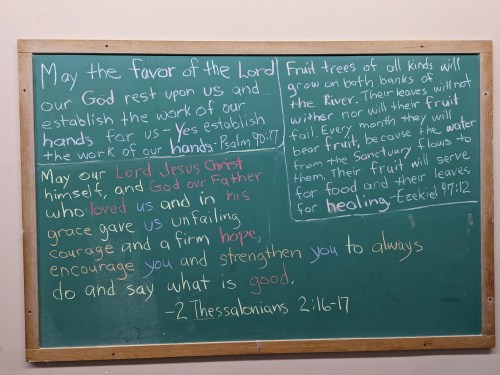 May the favor of the Lord
our God rest upon us and
establish the work of our
hands for us - Yes establish
the work of our hands. - Psalm 90:17
Fruit trees of all kinds will
grow on both banks of
the River. Their leaves will not
wither nor will their fruit
fail. Every month they will
bear fruit, because the water
from the Sanctuary flows to
them. Their fruit will serve
for food and their leaves
for healing. - Ezekiel 47:12
May our Lord Jesus Christ
himself, and God our Father
who loved us and in his
grace gave us unfailing
courage and a firm hope,
encourage you and strengthen you to always
do and say what is good.
-2 Thessalonians 2:16-17